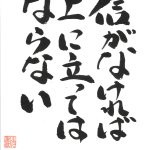 信がなければ
上に立っては
ならない